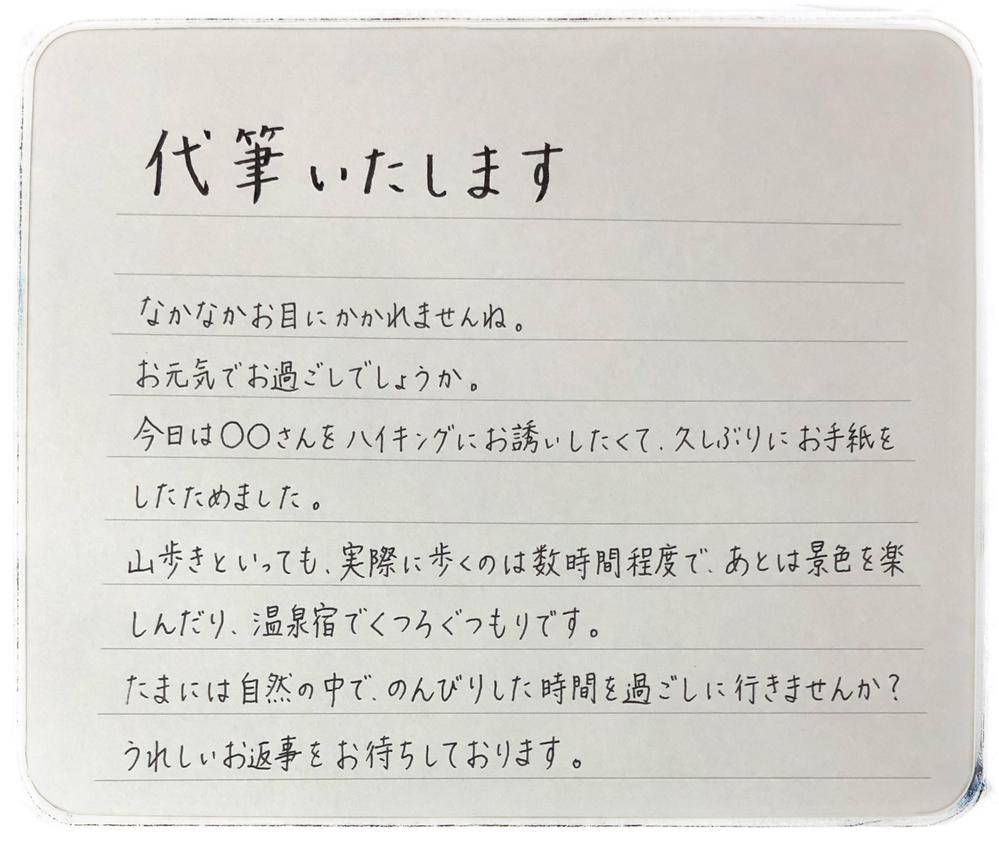 代筆いたします
なかなかお目にかかれませんね。
お元気でお過ごしでしょうか。
今日は〇〇さんをハイキングにお誘いしたくて、久しぶりにお手紙を
したためました。
山歩きといっても、実際に歩くのは数時間程度で、あとは景色を楽
しんだり、温泉宿でくつろぐつもりです。
たまには自然の中で、のんびりした時間を過ごしに行きませんか?
うれしいお返事をお待ちしております。